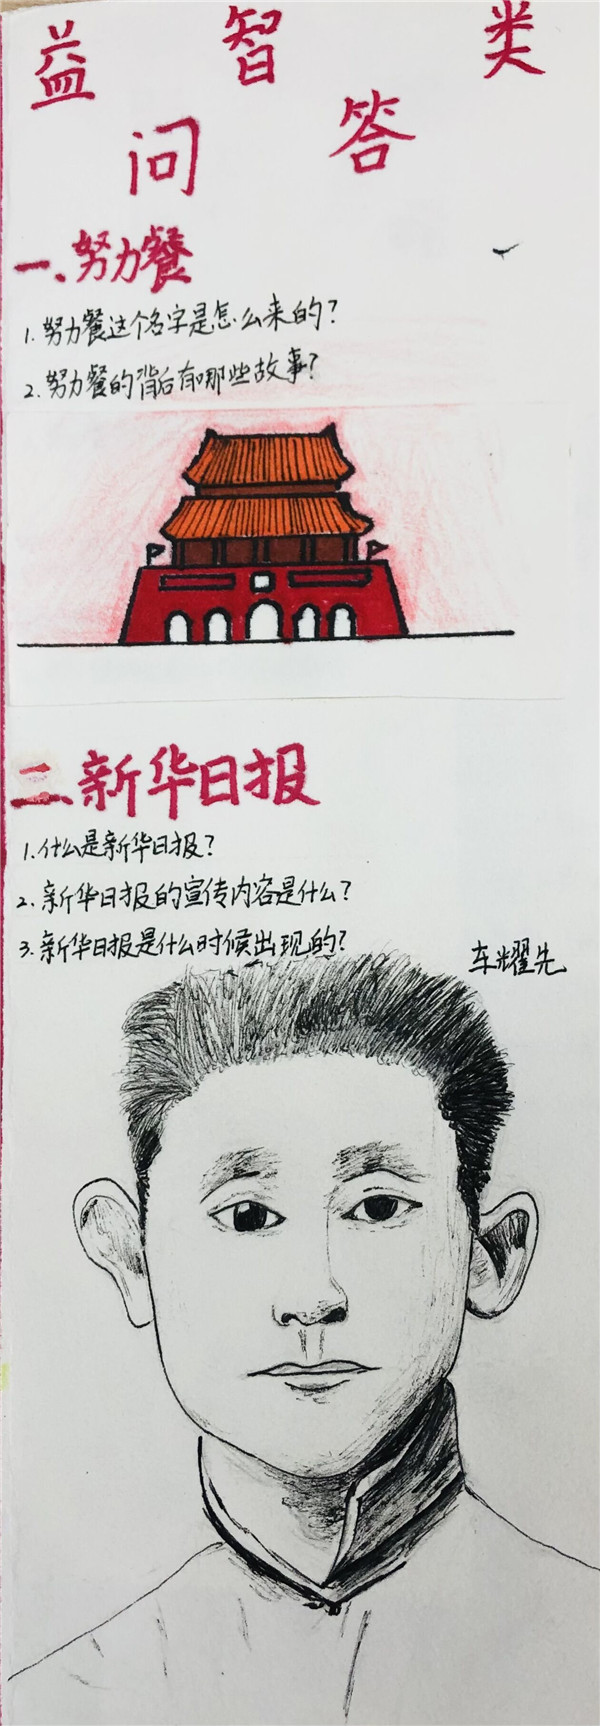 益智类
问答
一、努力餐
1.努力餐这个名字是怎么来的?
2.努力餐的背后有哪些故事?
二、新华日报
1.什么是新华日报?
2.新华日报的宣传内容是什么?
3.新华日报是什么时候出现的?
车耀先